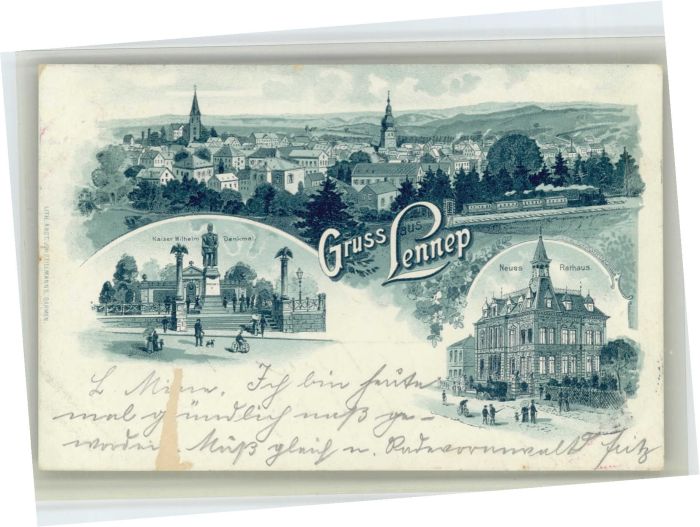 Kaiser Wilhelm Denkmal.
Gruss aus Lennep
Neues Rathaus.
L. Mine. Ich bin heute
mal gründlich naß ge-
worden. Muß gleich n. Radevormwalt Fritz